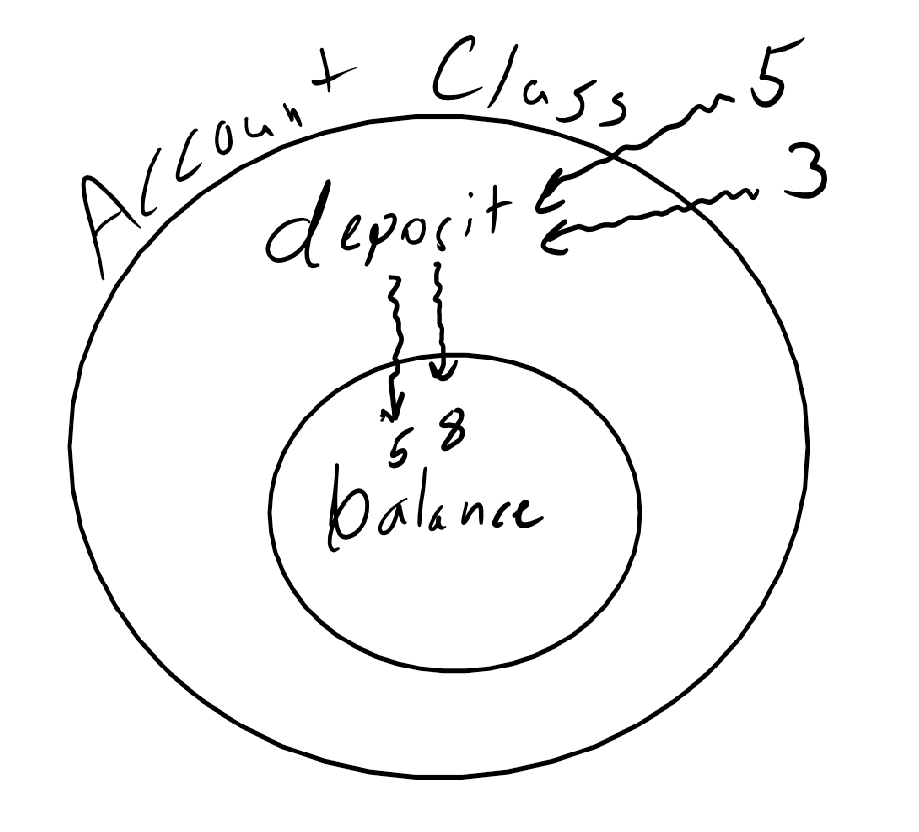 Account Class
5
3
deposit
5 8
balance